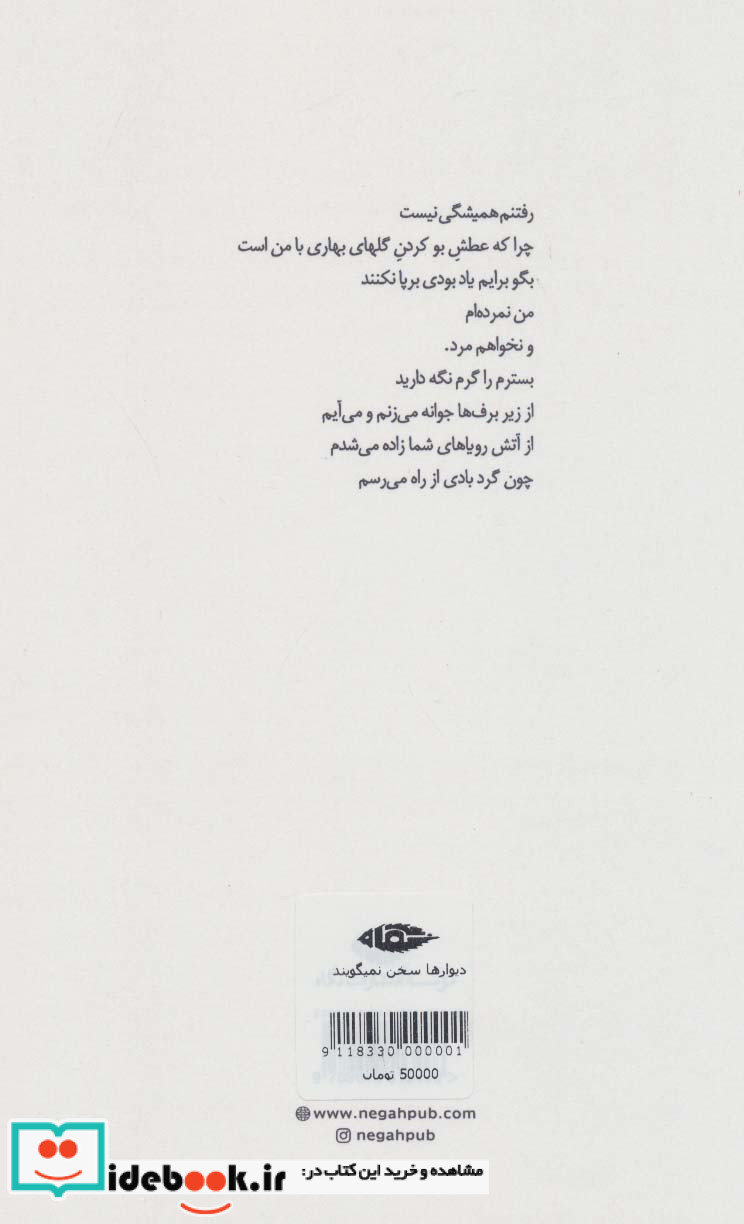 رفتنم همیشگی نیست
چرا که عطشِ بو کردنِ گلهای بهاری با من است
بگو برایم یاد بودی برپا نکنند
من نمرده‌ام
و نخواهم مرد.
بسترم را گرم نگه دارید
از زیر برف‌ها جوانه می‌زنم و می‌آیم
از آتش رویاهای شما زاده می‌شدم
چون گرد بادی از راه می‌رسم
نگاه
دیوارها سخن نمیگویند
9 118330 000001
50000 تومان
www.negahpub.com
negahpub
مشاهده و خرید این کتاب در:
idebook.ir